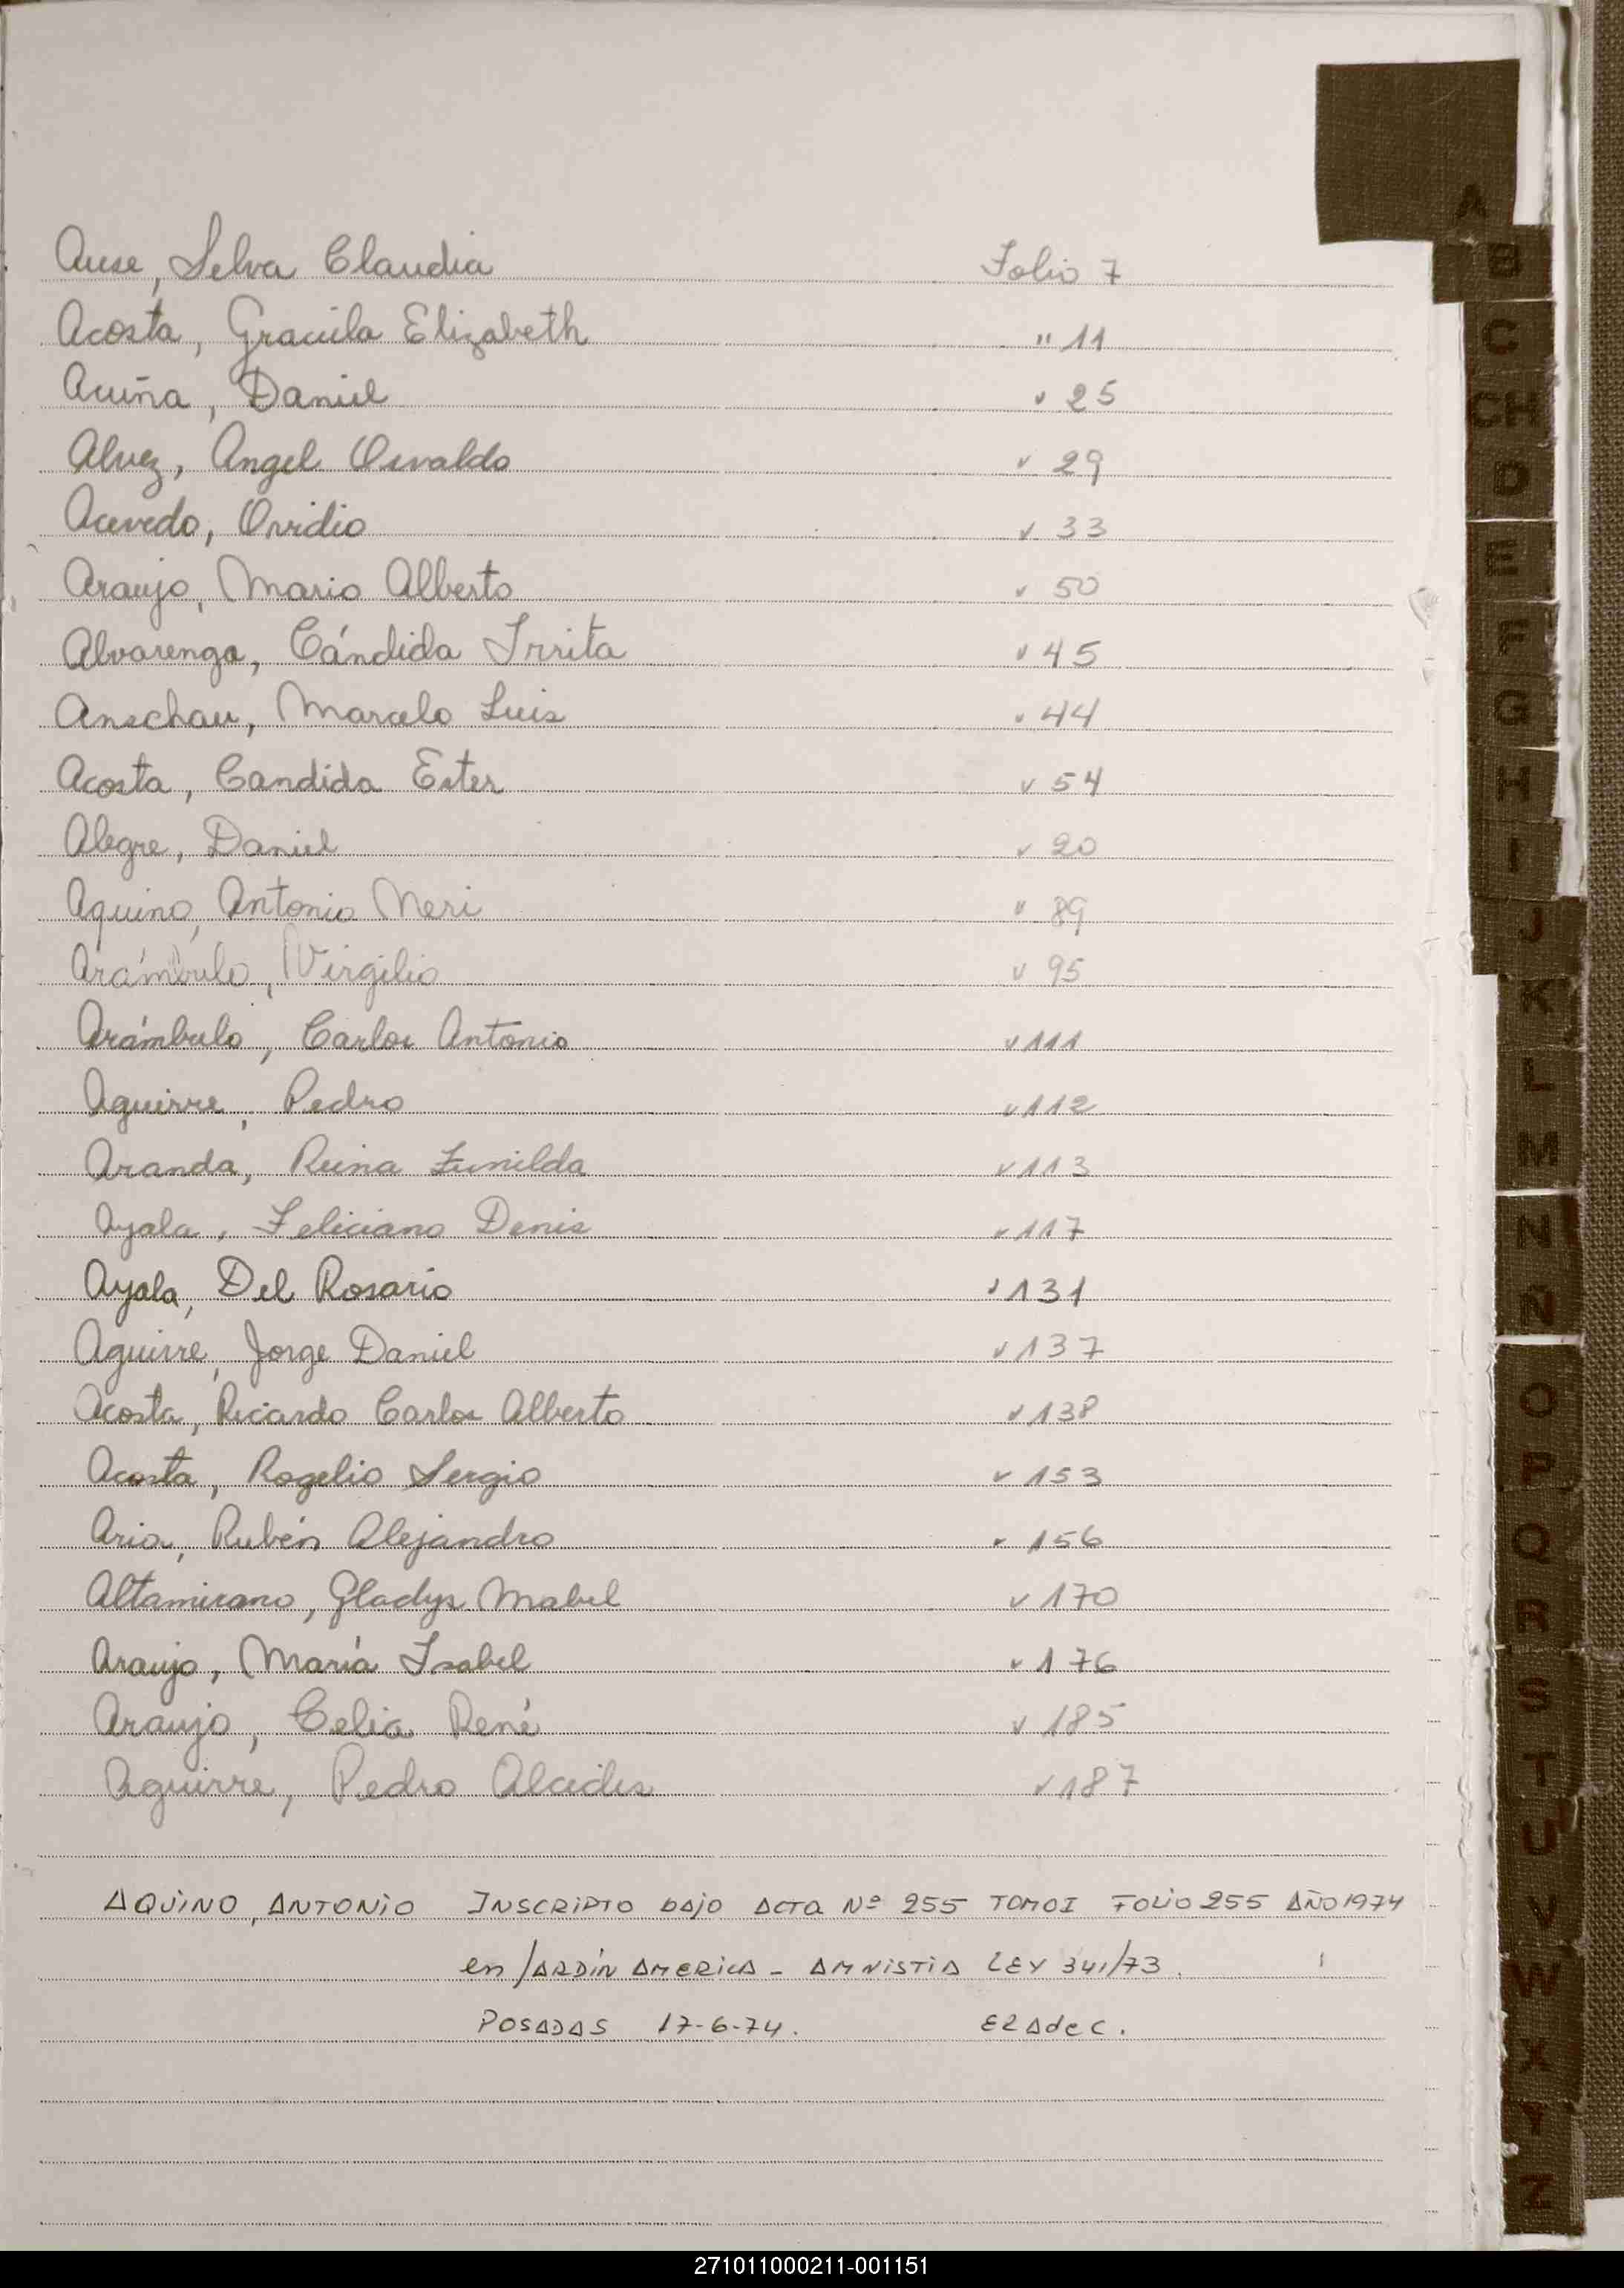 Ause, Selva Claudia Folio 7
Acosta, Graciela Elizabeth " 11
Acuña, Daniel " 25
Alvez, Angel Osvaldo " 29
Acevedo, Ovidio " 33
Araujo, Mario Alberto " 50
Alvarenga, Cándida Irrita " 45
Anschau, Marcelo Luis " 44
Acosta, Candida Ester " 54
Alegre, Daniel " 20
Aquino, Antonio Neri " 89
Arámbulo, Virgilio " 95
Arámbulo, Carlos Antonio " 111
Aguirre, Pedro " 112
Aranda, Reina Zunilda " 113
Ayala, Feliciano Denis " 117
Ayala, Del Rosario " 131
Aguirre, Jorge Daniel " 137
Acosta, Ricardo Carlos Alberto " 138
Acosta, Rogelio Sergio " 153
Aria, Rubén Alejandro " 156
Altamirano, Gladys Mabel " 170
Araujo, María Isabel " 176
Araujo, Celia René " 185
Aguirre, Pedro Alcides " 187
AQUINO, ANTONIO INSCRIPTO BAJO ACTA Nº 255 TOMO I FOLIO 255 AÑO 1974
en JARDÍN AMERICA - AMNISTIA LEY 341/73.
POSADAS 17-6-74.
A
B
C
CH
D
E
F
G
H
I
J
K
L
M
N
Ñ
O
P
Q
R
S
T
U
V
W
X
Y
Z
271011000211-001151